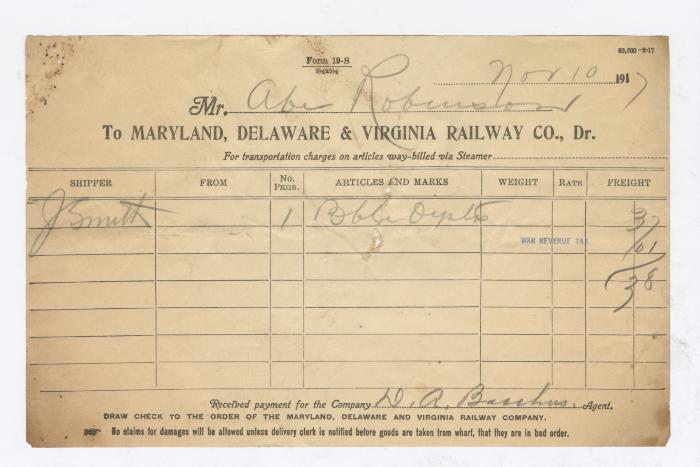 Form 19-S
20,000-2-17
Nov 10 1917
Mr. Abe Robinson
To MARYLAND, DELAWARE & VIRGINIA RAILWAY CO., Dr.
For transportation charges on articles way-billed via Steamer
SHIPPER FROM No. PKGS. ARTICLES AND MARKS WEIGHT RATE FREIGHT
J Smith 1 Bbl Oysters 37
WAR REVENUE TAX 01
38
Received payment for the Company D. A. Agent.
DRAW CHECK TO THE ORDER OF THE MARYLAND, DELAWARE AND VIRGINIA RAILWAY COMPANY.
No claims for damages will be allowed unless delivery clerk is notified before goods are taken from wharf, that they are in bad order.